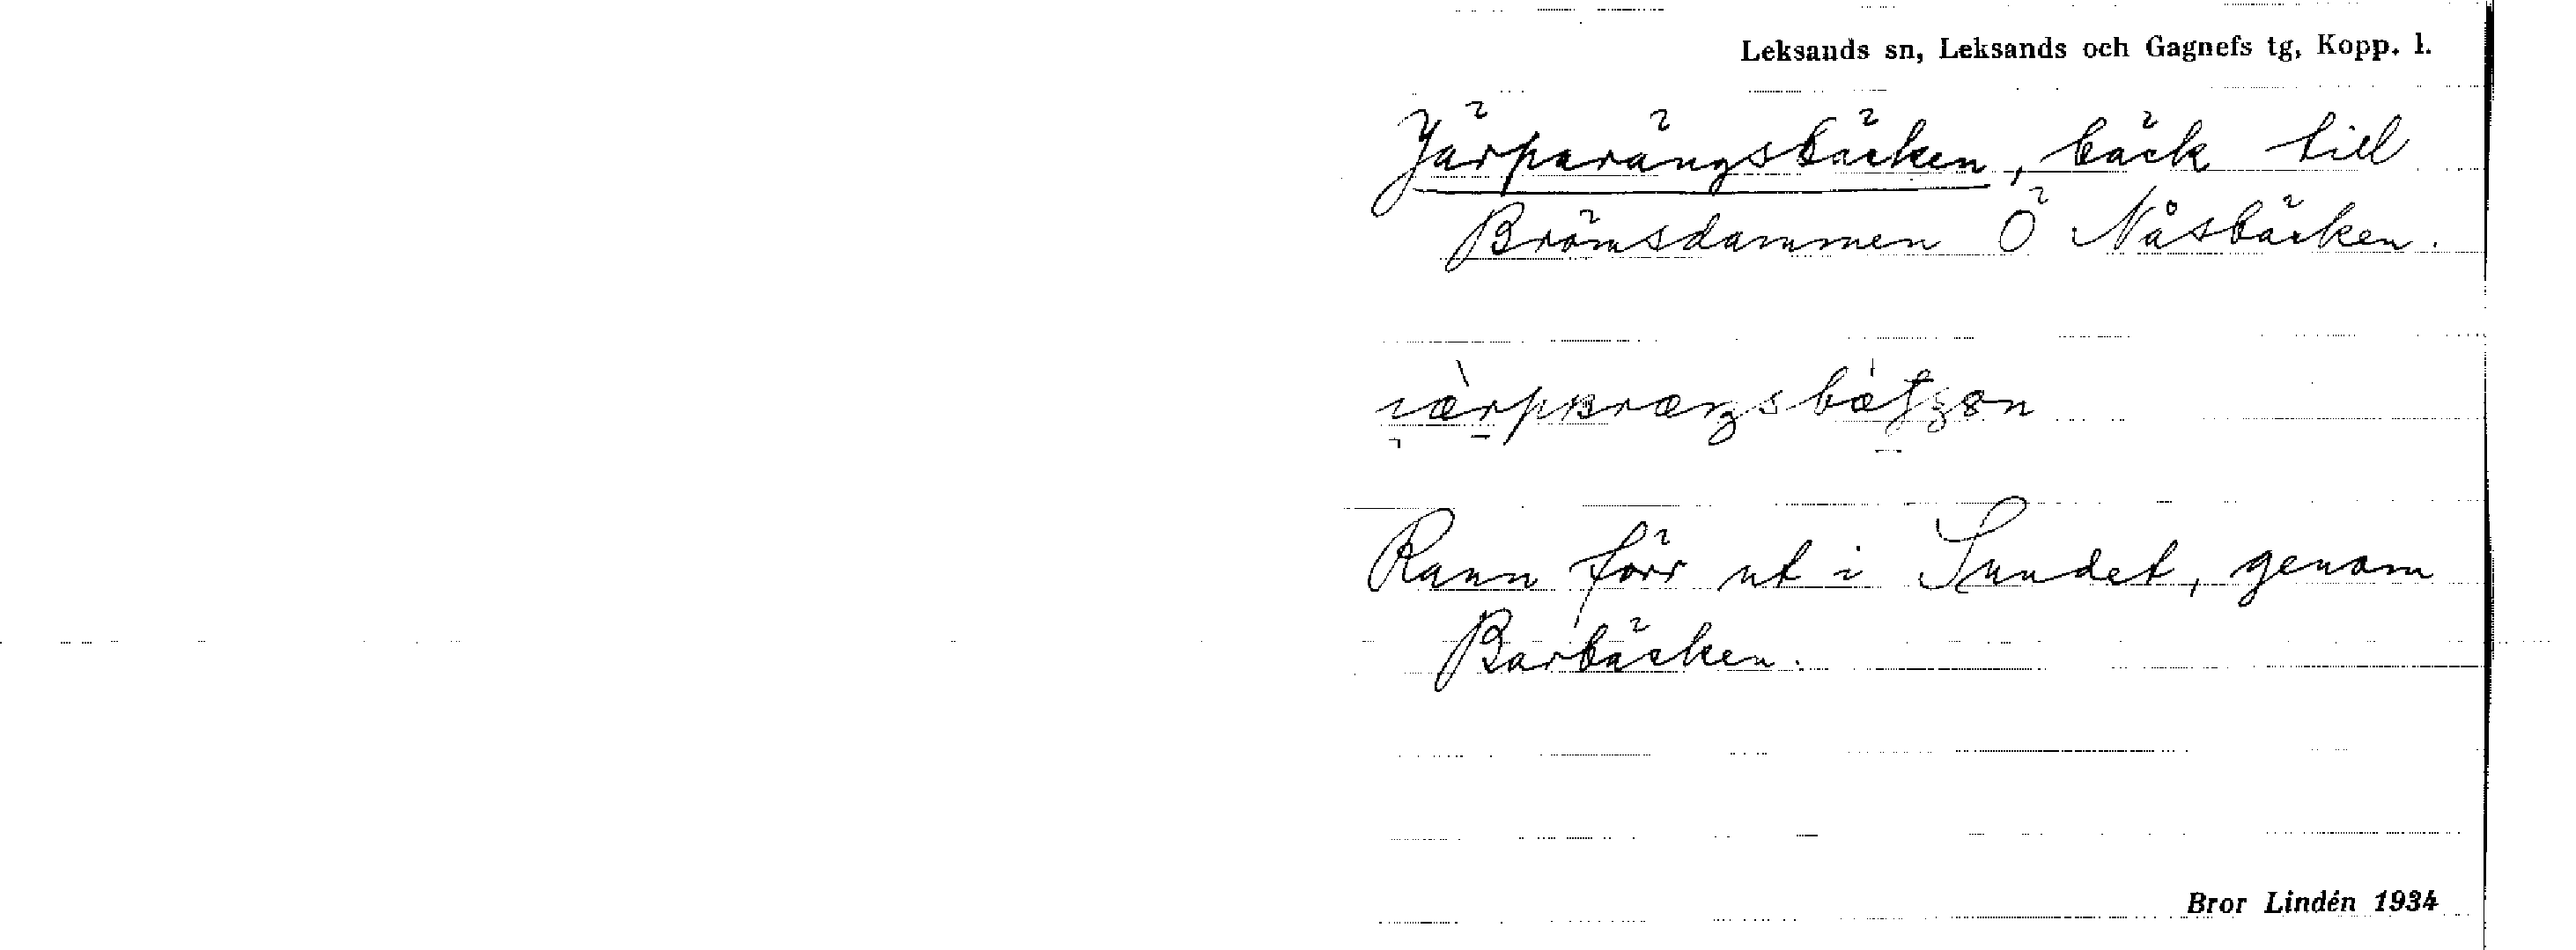 Leksands sn, Leksands och Gagnefs tg, Kopp. l.
Järparängsbäcken, bäck till
Brömsdammen Ö Nåsbäcken.
Rann förr ut i Sundet, genom
Barbäcken.
Bror Lindén 1934